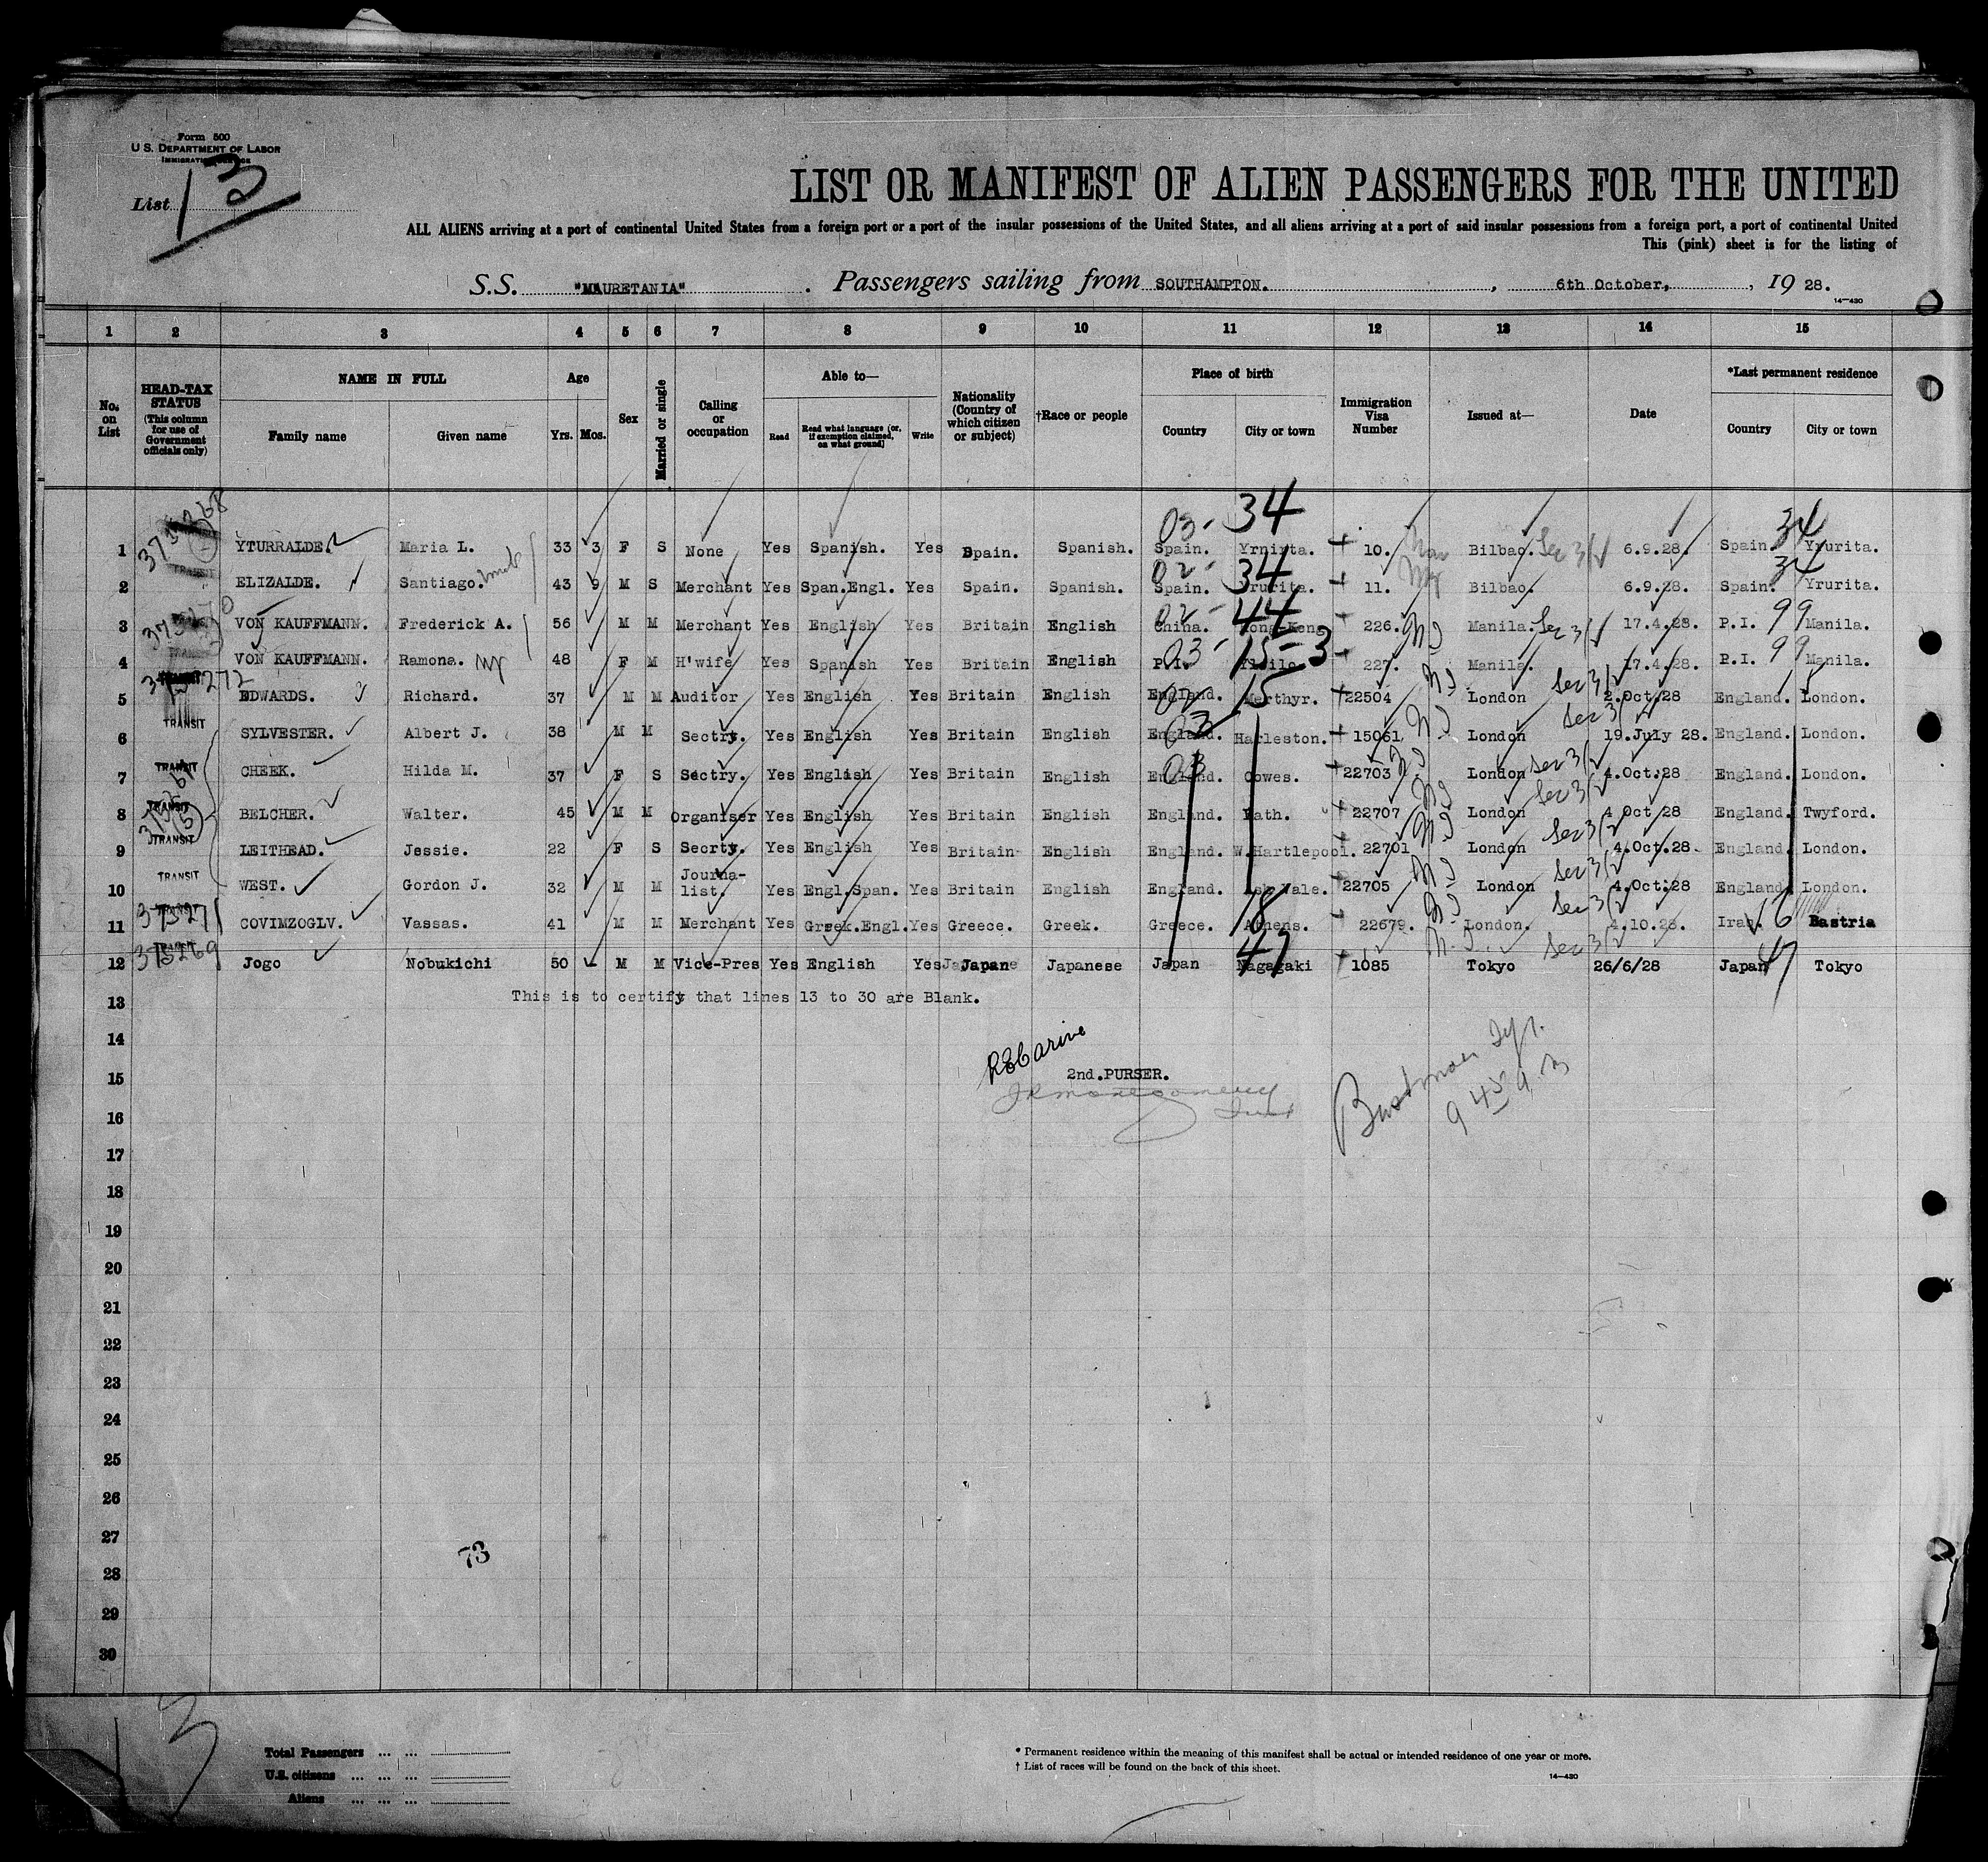 Form 500
U.S. DEPARTMENT OF LABOR
IMMIGRATION SERVICE
List 13
LIST OR MANIFEST OF ALIEN PASSENGERS FOR THE UNITED
ALL ALIENS arriving at a port of continental United States from a foreign port or a port of the insular possessions of the United States, and all aliens arriving at a port of said insular possessions from a foreign port, a port of continental United
This (pink) sheet is for the listing of
S.S. "MAURETANIA". Passengers sailing from SOUTHAMPTON. , 6th October, , 19 28.
14—430
1 2 3 4 5 6 7 8 9 10 11 12 13 14 15
No. on List
HEAD-TAX STATUS (This column for use of Government officials only)
NAME IN FULL
Family name Given name
Age
Yrs. Mos.
Sex
Married or single
Calling or occupation
Able to—
Read Read what language (or, if exemption claimed, on what ground) Write
Nationality (Country of which citizen or subject)
†Race or people
Place of birth
Country City or town
Immigration Visa Number
Issued at—
Date
*Last permanent residence
Country City or town
03- 34 34
1 YTURRALDE. Maria L. 33 3 F S None Yes Spanish. Yes Spain. Spanish. Spain. 10. Bilbao. Sec 3 6.9.28. Spain. Yrurita.
02- 34 34
2 ELIZALDE. Santiago. 43 9 M S Merchant Yes Span.Engl. Yes Spain. Spanish. Spain. Yrurita. 11. Bilbao. 6.9.28. Spain. Yrurita.
02- 44
3 VON KAUFFMANN. Frederick A. 56 M M Merchant Yes English Yes Britain English China. Hong-Kong 226. Manila. Sec 3 17.4.28. P.I. 99 Manila.
03- 15-3
4 VON KAUFFMANN. Ramona. 48 F M H'wife Yes Spanish Yes Britain English P.I. 227. Manila. 17.4.28. P.I. 99 Manila.
375272
5 EDWARDS. Richard. 37 M M Auditor Yes English Yes Britain English England. 02 15 Merthyr. 22504 London Sec 3 2.Oct.28 England. London.
6 TRANSIT SYLVESTER. Albert J. 38 M M Sectry. Yes English Yes Britain English England. 03 Harleston. 15061 London Sec 3 19.July 28. England. London.
7 TRANSIT CHEEK. Hilda M. 37 F S Sectry. Yes English Yes Britain English England. 03 Cowes. 22703 London Sec 3 4.Oct.28 England. London.
8 TRANSIT BELCHER. Walter. 45 M M Organiser Yes English Yes Britain English England. Bath. 22707 London Sec 3 4 Oct 28 England. Twyford.
9 TRANSIT LEITHEAD. Jessie. 22 F S Secrty. Yes English Yes Britain English England. W.Hartlepool. 22701 London Sec 3 4.Oct.28. England. London.
10 TRANSIT WEST. Gordon J. 32 M M Journa-list. Yes Engl.Span. Yes Britain English England. Ash Vale. 22705 London Sec 3 4.Oct.28 England. London.
375271
11 COVINZOGLV. Vassas. 41 M M Merchant Yes Greek.Engl. Yes Greece. Greek. Greece. 18 Athens. 22679. London. Sec 3 4.10.28. 16 Bastria
375269
12 Jogo Nobukichi 50 M M Vice-Pres Yes English Yes Japan Japanese Japan 47 Nagagaki 1085 Tokyo Sec 3 26/6/28 Japan 47 Tokyo
13 This is to certify that lines 13 to 30 are Blank.
14
15 2nd.PURSER.
16
17
18
19
20
21
22
23
24
25
26
27
73
28
29
30
Total Passengers ... ...
U.S. citizens ... ... ...
Aliens ... ... ...
* Permanent residence within the meaning of this manifest shall be actual or intended residence of one year or more.
† List of races will be found on the back of this sheet.
14—430